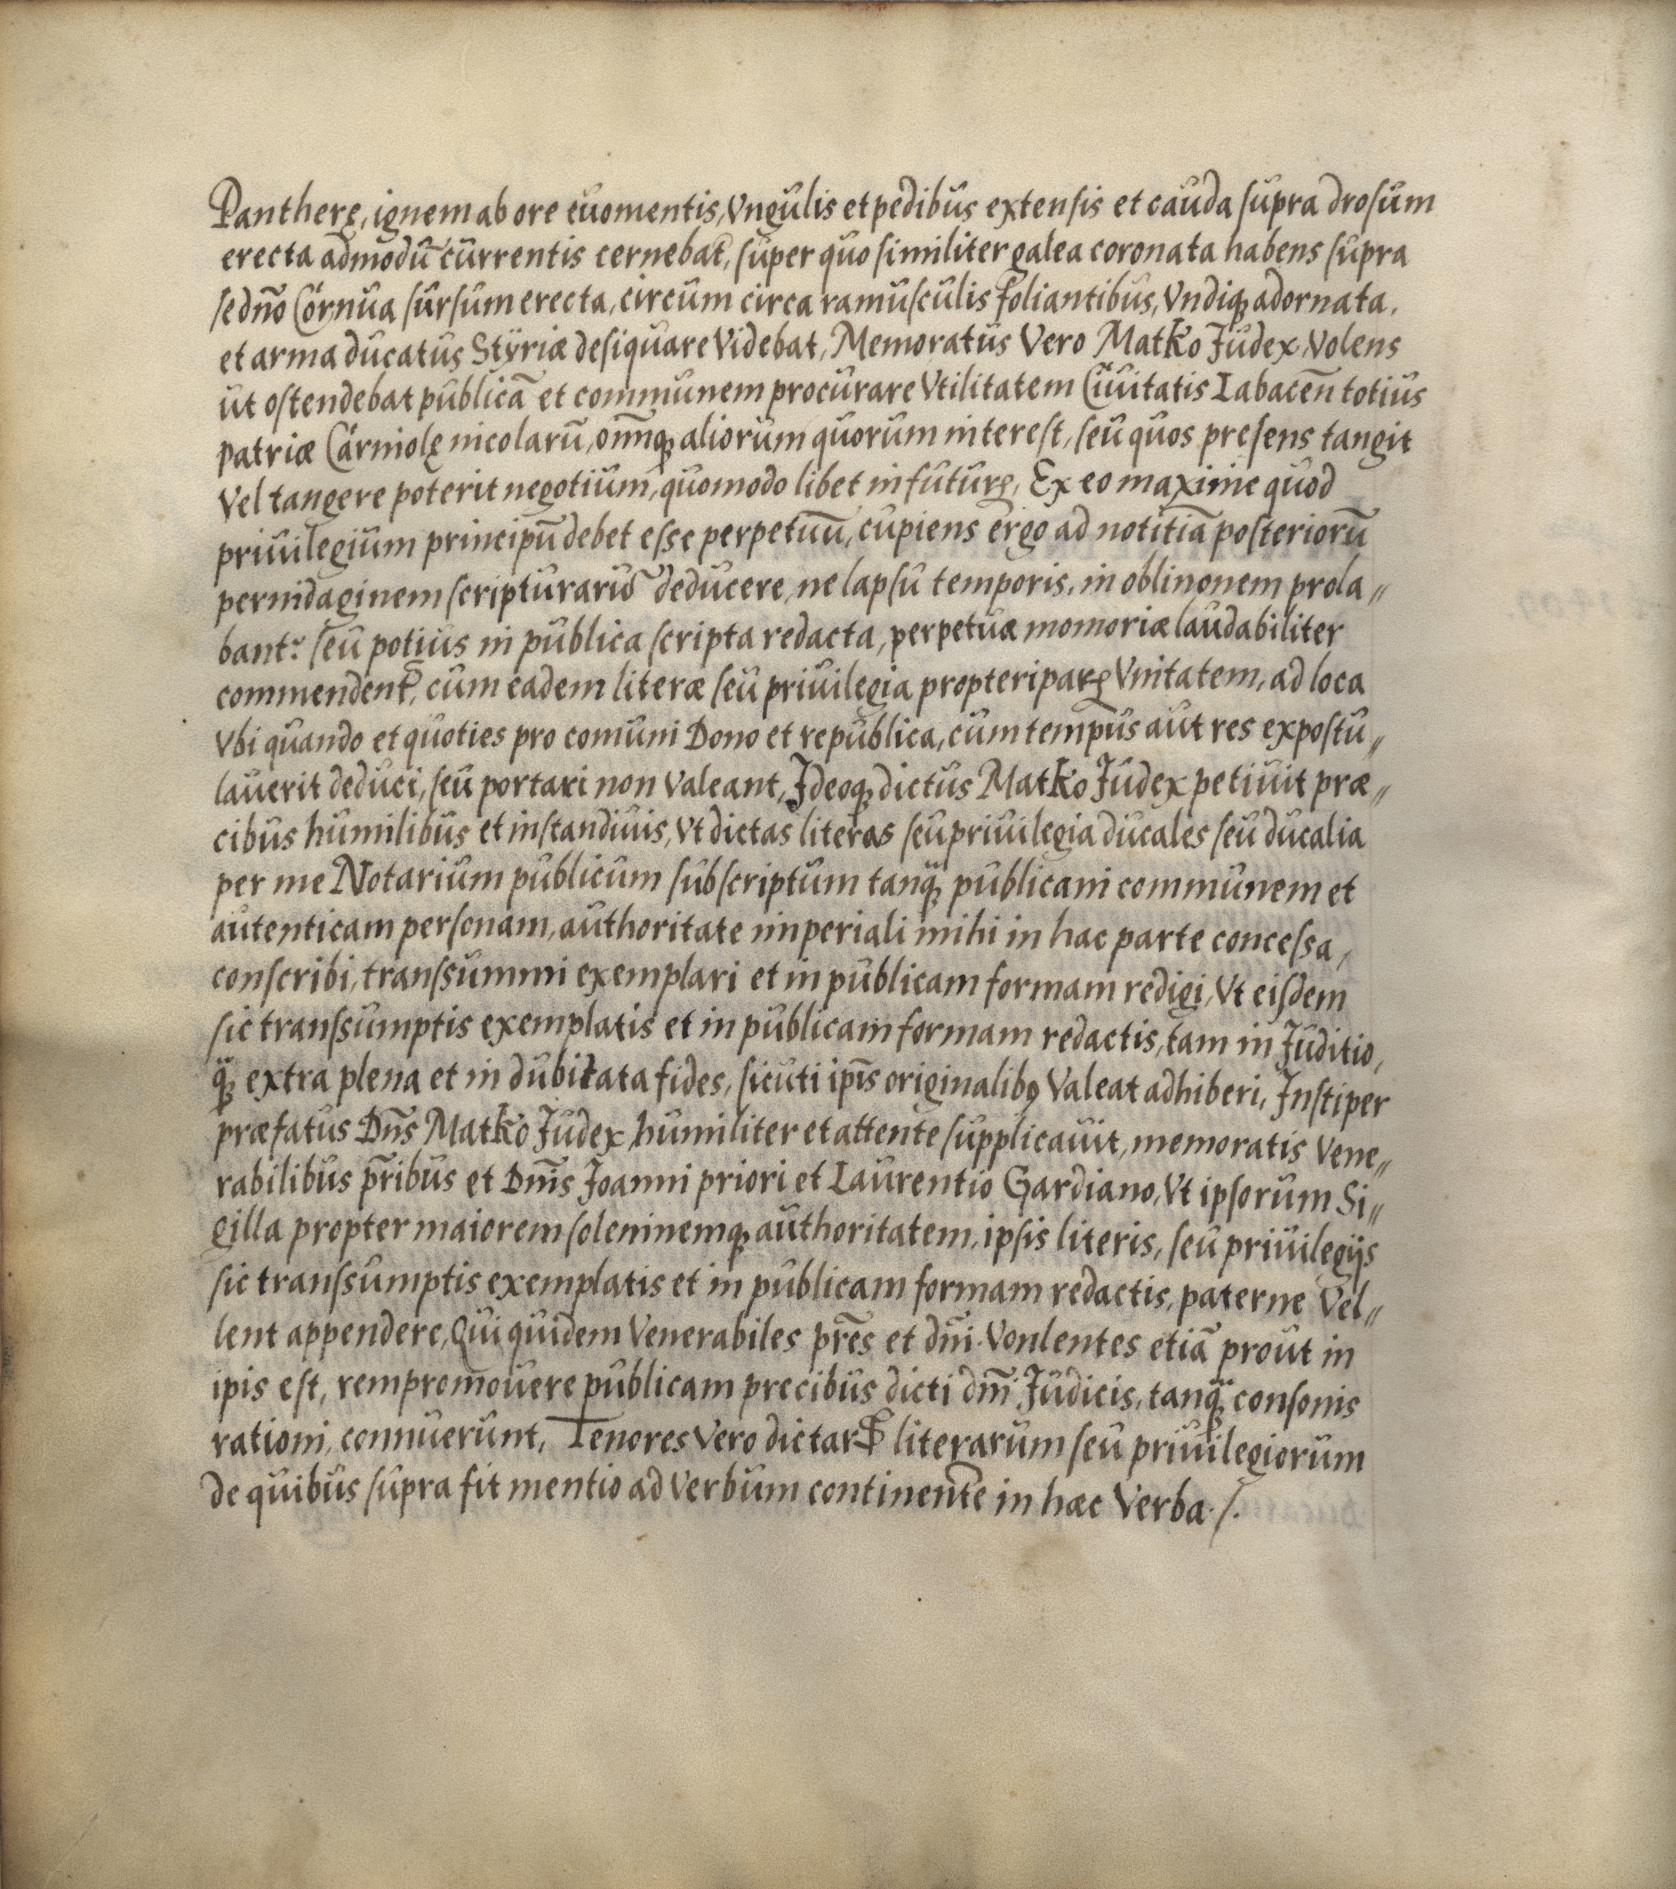 Pantherę, ignem ab ore euomentis, Vngulis et pedibus extensis et cauda supra drosum
erecta admodū currentis cernebat̄, super quo similiter galea coronata habens supra
se dnō Cornua sursum erecta, circum circa ramusculis foliantibus, Vndiq; adornata,
et arma ducatus Stÿriæ desiquare Videbat, Memoratus Vero Matko Judex, Volens
ut ostendebat publicā et communem procurare Vtilitatem Ciuitatis Labacen̄ totius
patriæ Carniolę nicolarū, omīq; aliorum quorum interest, seu quos presens tangit
Vel tangere poterit negotium, quomodo libet in futurę, Ex eo maxime quod
priuilegium principū debet esse perpetuū, cupiens ergo ad notitiā posteriorū
per nidaginem scripturariō deducere, ne lapsu temporis, in oblinonem prola„
bantr̄ seu potius in publica scripta redacta, perpetuæ momoriæ laudabiliter
commendent̄, cum eadem literæ seu priuilegia propter iparę Vnitatem, ad loca
Vbi quando et quoties pro comuni Dono et republica, cum tempus aut res expostu„
lauerit deduci, seu portari non Valeant, Jdeoq; dictus Matko Judex petiuit præ„
cibus humilibus et instandiuis, Vt dictas literas seu priuilegia ducales seu ducalia
per me Notarium publicum subscriptum tanq̈; publicam communem et
autenticam personam, authoritate imperiali mihi in hac parte concessa,
conscribi, transsummi exemplari et in publicam formam redigi, Vt eisdem
sic transsumptis exemplatis et in publicam formam redactis, tam in Juditio,
q̈; extra plena et in dubitata fides, sicuti ipīs originalibꝯ Valeat adhiberi, Jnstiper
præfatus Dn̄s Matko Judex, humiliter et attente supplicauit, memoratis Vene„
rabilibus pr̄ibus et Dnīs Joanni priori et Laurentio Gardiano, Vt ipsorum Si„
gilla propter maiorem soleninemq; authoritatem, ipsis literis, seu priuilegijs
sic transsumptis exemplatis et in publicam formam redactis, paterne Vel„
lent appendere, Qui quidem Venerabiles prēs et dnī Vonlentes etiā prout in
ipis est, rempromouere publicam precibus dicti dnī Judicis, tanq̈; consonis
rationi, connuerunt, Tenores Vero dictarꝝ literarum seu priuilegiorum
de quibus supra fit mentio ad Verbum continente in hæc Verba ./.